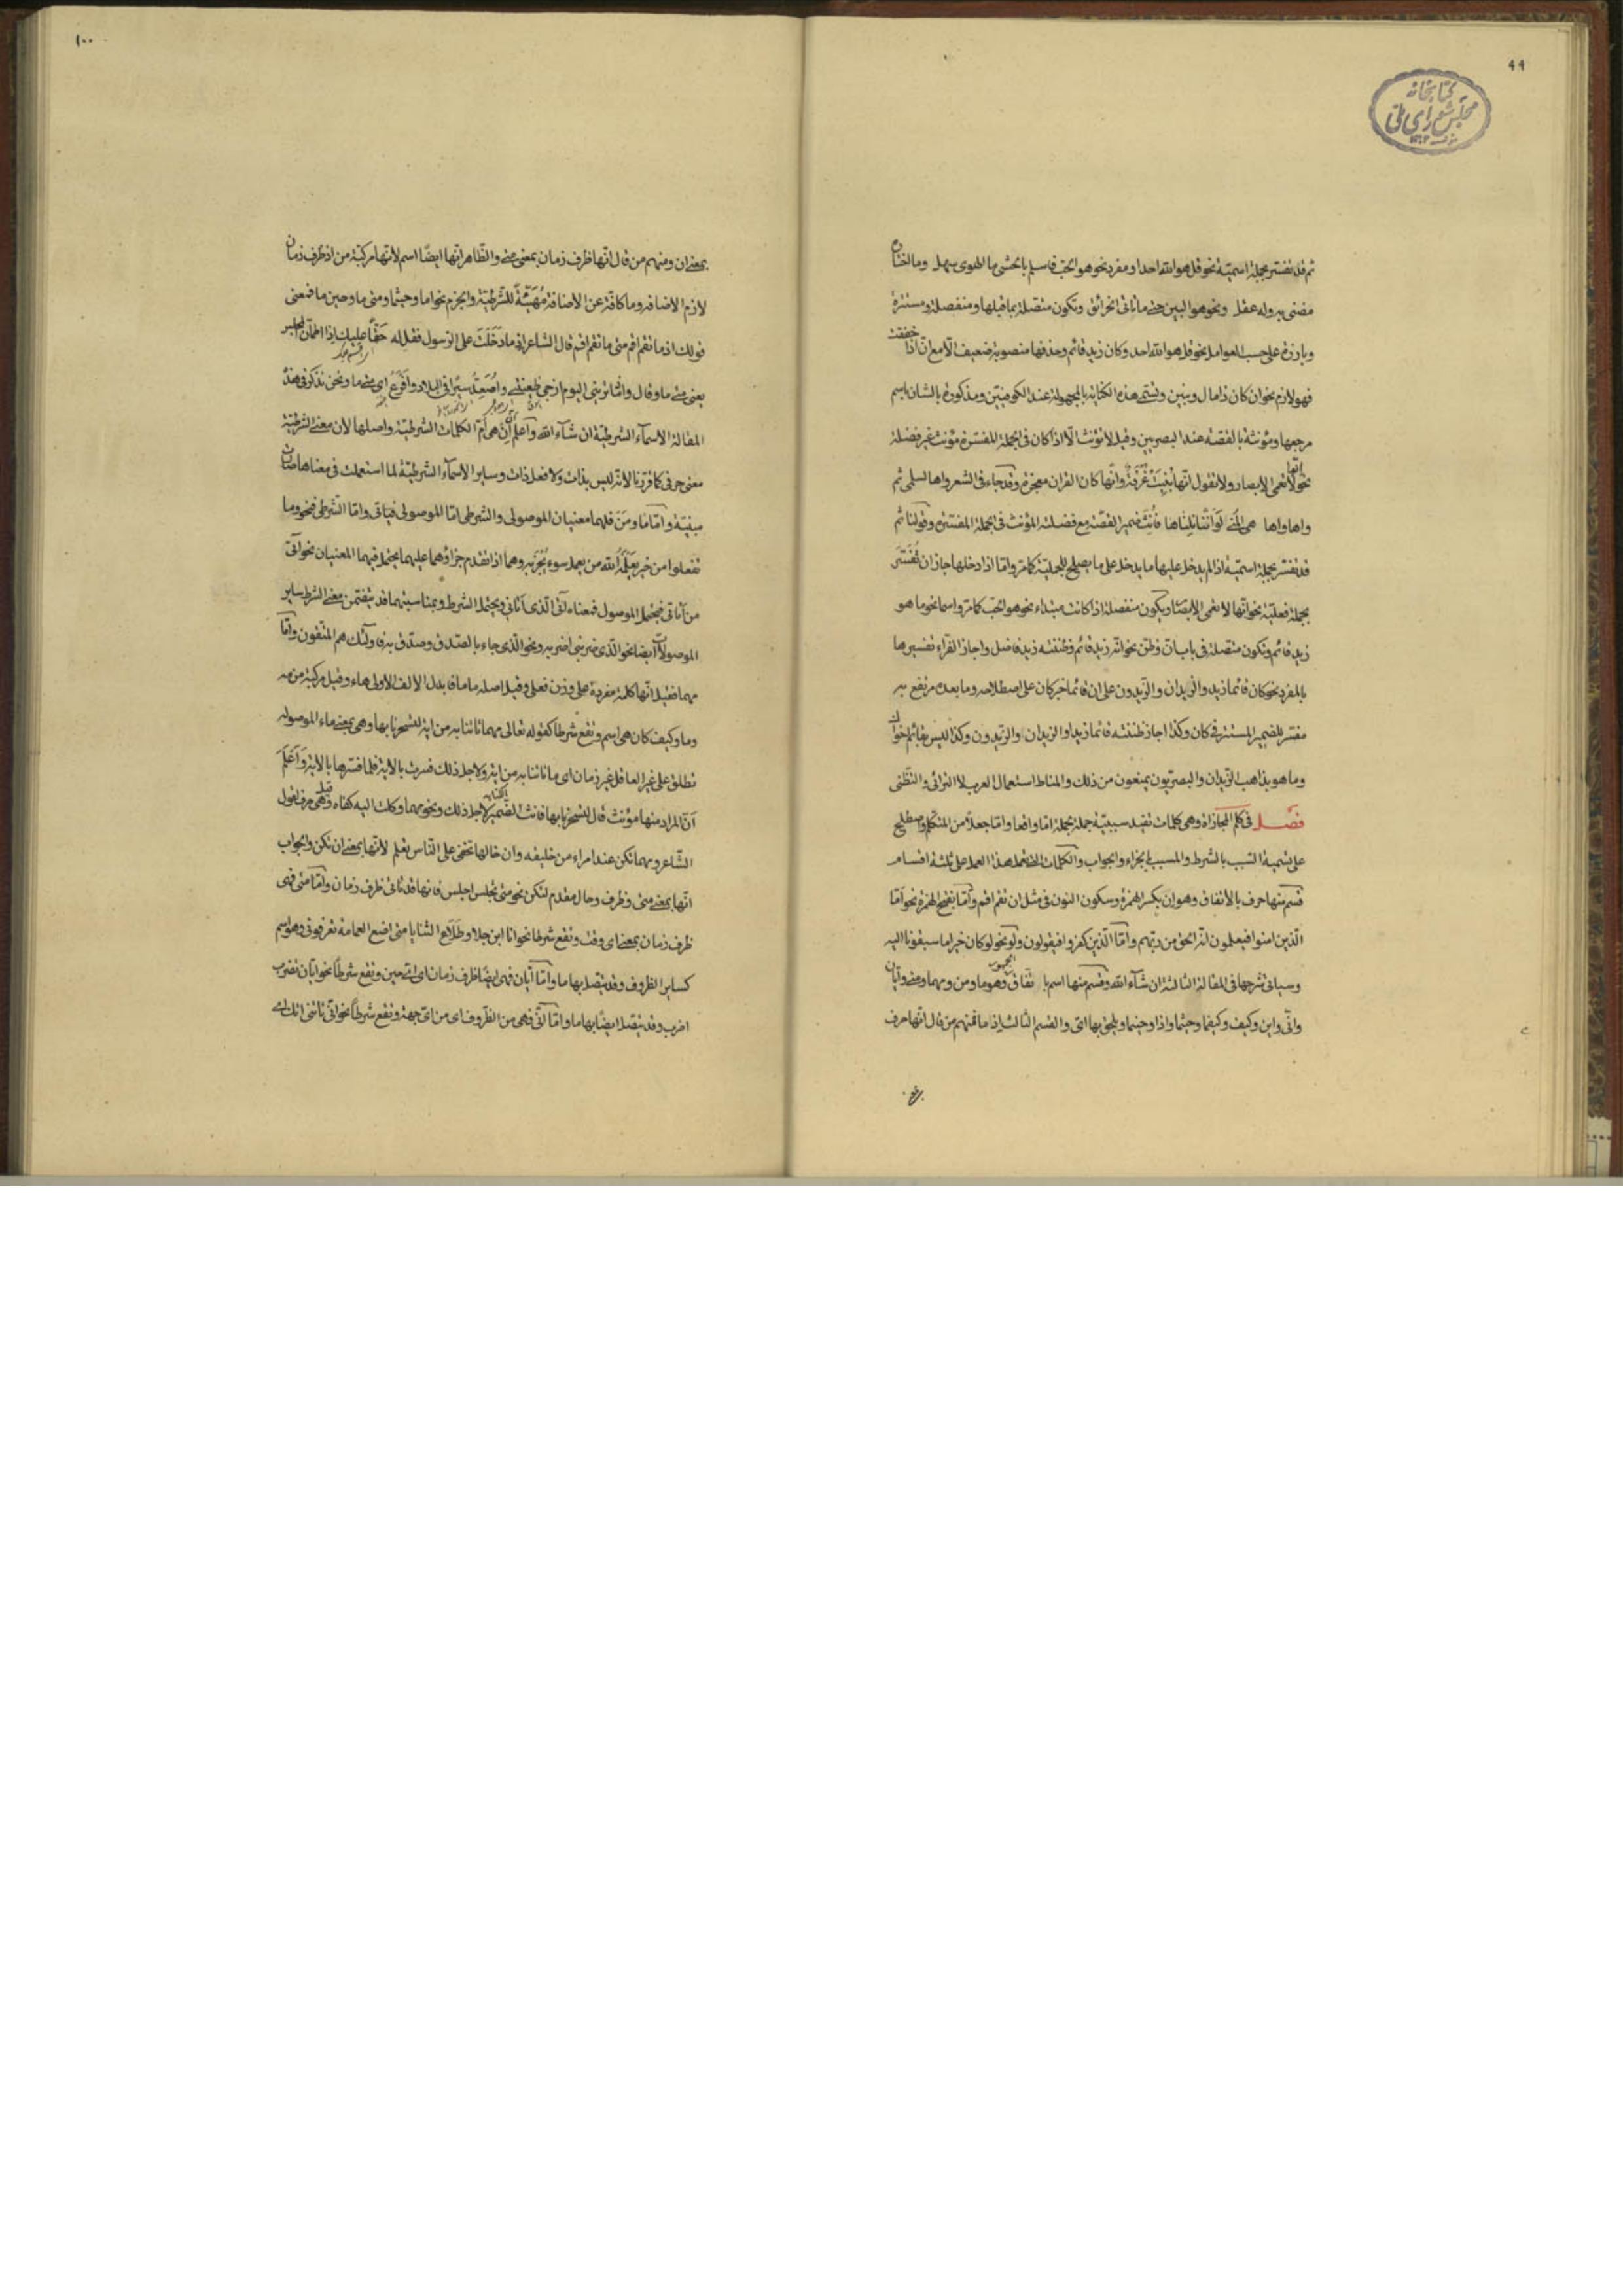 ٩٩
کتابخانه
مجلس شورای ملی
ثم قد تفسر بجملة اسمية نحو قل هو الله احد او مفرد نحو هو الحب فاسلم بالحشى ما الهوى سهل وما اختاره
مضنى به وله عقل ونحو هو البين حتى ما تأتى الحزائق وتكون متصلة بما قبلها ومنفصلة ومستترة
وبارزة على حسب العوامل نحو قل هو الله احد وكان زيد قائم وحذفها منصوبة ضعيف الا مع ان اذا خففت
فهو لازم نحو ان كان ذا مال وبنين وتسمى هذه الكناية بالمجهولة عند الكوفيين ومذكورة بالشان باسم
مرجعها ومؤنثة بالقصة عند البصريين وقيل لا تؤنث الا اذا كان فى الجملة المفسرة مؤنث غير فضلة
نحو لا تعمى الابصار ولا تقول انها بنيت غرفة وانها كان القران معجزة وقد جاء فى الشعر واها لسلمى ثم
واها واها هى المنى لو اننا نلناها فانث ضمير القصة مع فضلة المؤنث فى الجملة المفسرة وقولنا ثم
قد تفسر بجملة اسمية اذا لم يدخل عليها ما يدخل على ما يصلح للجملية كما مر واما اذا دخلها جاز ان تفسر
بجملة فعلية نحو انها لا تعمى الابصار ويكون منفصلة اذا كانت مبتداء نحو هو الحب كما مر واسما نحو ما هو
زيد قائم وتكون متصلة فى باب ان وظن نحو انه زيد قائم وظننته زيد فاضل واجاز الفراء تفسيرها
بالمفرد نحو كان قائما زيد والزيدان والزيدون على ان قائما خبر كان على اصطلاحه وما بعده مرتفع به
مفسر للضمير المستتر فى كان وكذا اجاز ظننته قائما زيد او الزيدان او الزيدون وكذا ليس بقائم اخواك
وما هو بذاهب الزيدان والبصريون يمنعون من ذلك والمناط استعمال العرب لا الترائى والتظنى
فصل فى كلم المجازاة وهى كلمات تفيد سببية جملة بجملة اما واقعا واما جعلا من المتكلم واصطلح
على تسمية السبب بالشرط والمسبب بالجزاء والجواب والكلمات التى تعمل هذا العمل على ثلثة اقسام
قسم منها حرف بالاتفاق وهو ان بكسر الهمزة وسكون النون فى مثل ان تقم اقم واما بفتح الهمزة نحو اما
الذين امنوا فيعلمون انه الحق من ربهم واما الذين كفروا فيقولون ولو نحو لو كان خيرا ما سبقونا اليه
وسياتى شرحها فى المقالة الثالثة ان شاء الله وقسم منها اسم باتفاق الجمهور وهو ما ومن ومهما ومتى وايان
وانى واين وكيف وكيفما وحيثما واذا وحينما ويلحق بها اى والقسم الثالث اذ ما فمنهم من قال انها حرف
١٠٠
بمعنى ان ومنهم من قال انها ظرف زمان بمعنى متى والظاهر انها ايضا اسم لانها مركبة من اذ ظرف زمان
لازم الاضافة وما كافة عن الاضافة مهيئة للشرطية والجزم نحو اما وحيثما ومتى ما وحين ما فمعنى
قولك اذ ما تقم اقم متى ما تقم اقم قال الشاعر اذ ما دخلت على الرسول فقل له حقا عليك اذا اطمان المجلس
يعنى متى ما وقال واما ترينى اليوم ازجى ظعينتى واصعد سيرا فى البلاد وافرع اى متى ما ونحن نذكر فى هذه
المقالة الاسماء الشرطية ان شاء الله واعلم ان ان هى ام الكلمات الشرطية واصلها لان معنى الشرطية
معنى حرفى كما قررنا لانه ليس بذات ولا فعل ذات وساير الاسماء الشرطية لما استعملت فى معناها صارت
مبنية واما ما ومن فلهما معنيان الموصولى والشرطى اما الموصولى فياتى واما الشرطى فنحو وما
تفعلوا من خير يعلمه الله من يعمل سوء يجز به وهما اذا تقدم جزاؤهما عليهما يحتمل فيهما المعنيان نحو آتى
من اتانى فيحتمل الموصول فمعناه آتى الذى اتانى ويحتمل الشرط وبمناسبتهما قد يتضمن معنى الشرط ساير
الموصولات ايضا نحو الذى ضربنى اضربه ونحو الذى جاء بالصدق وصدق به فاولئك هم المتقون واما
مهما فقيل انها كلمة مفردة على وزن فعلى وقيل اصله ماما فابدل الالف الاولى هاء وقيل مركبة من مه
وما وكيف كان هى اسم وتقع شرطا كقوله تعالى مهما تاتنا به من اية لتسحرنا بها وهى بمعنى ماء الموصولة
تطلق على غير العاقل غير زمان اى ما تاتنا به من اية ولاجل ذلك فسرت بالاية فلما فسرها بالاية واعلم
ان المراد منها مؤنث قال لتسحرنا بها فانث الضمير لاجل ذلك ونحو مهما وكلت اليه كفاه وقيل هى حرف لقول
الشاعر ومهما تكن عند امراء من خليقة وان خالها تخفى على الناس تعلم لانها بمعنى ان تكن والجواب
انها بمعنى متى وظرف وحال مقدم لتكن نحو متى تجلس اجلس فانها قد تاتى ظرف زمان واما متى فهى
ظرف زمان بمعنى اى وقت وتقع شرطا نحو انا ابن جلا وطلاع الثنايا متى اضع العمامة تعرفونى وهو اسم
كساير الظروف وقد يتصل بها ما واما ايان فهى ايضا ظرف زمان اى اى حين وتقع شرطا نحو ايان تضرب
اضرب وقد يتصل ايضا بها ما واما انى فهى من الظروف اى من اى جهة وتقع شرطا نحو انى تاتنى اتك اى